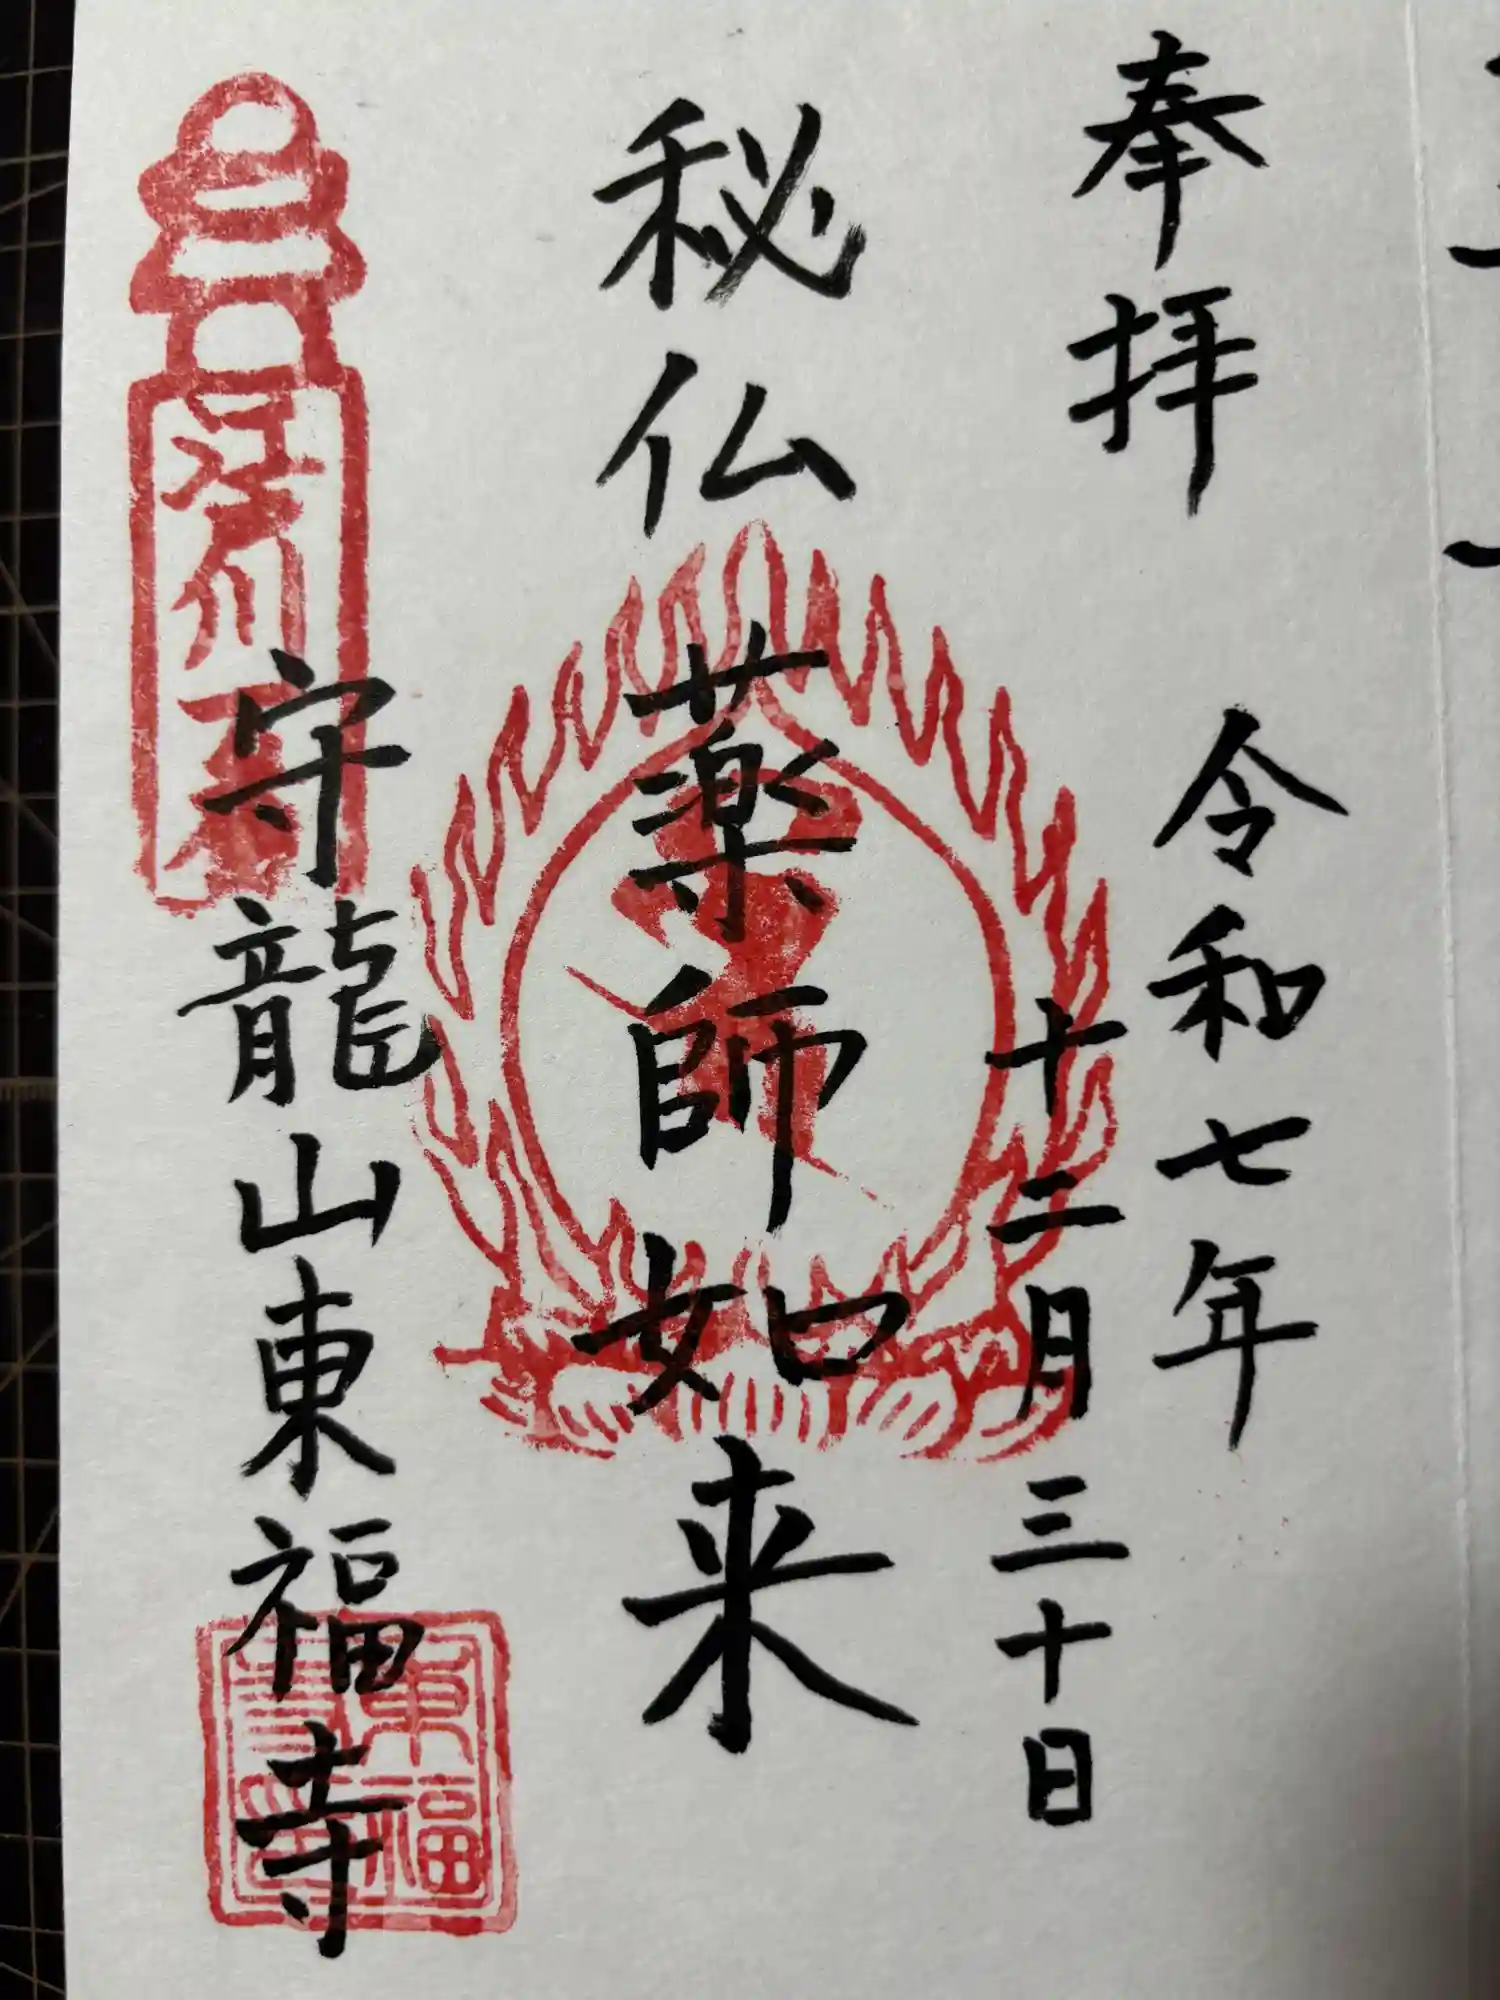 奉拝
令和七年
十二月三十日
秘仏薬師如来
守龍山東福寺
東福寺印